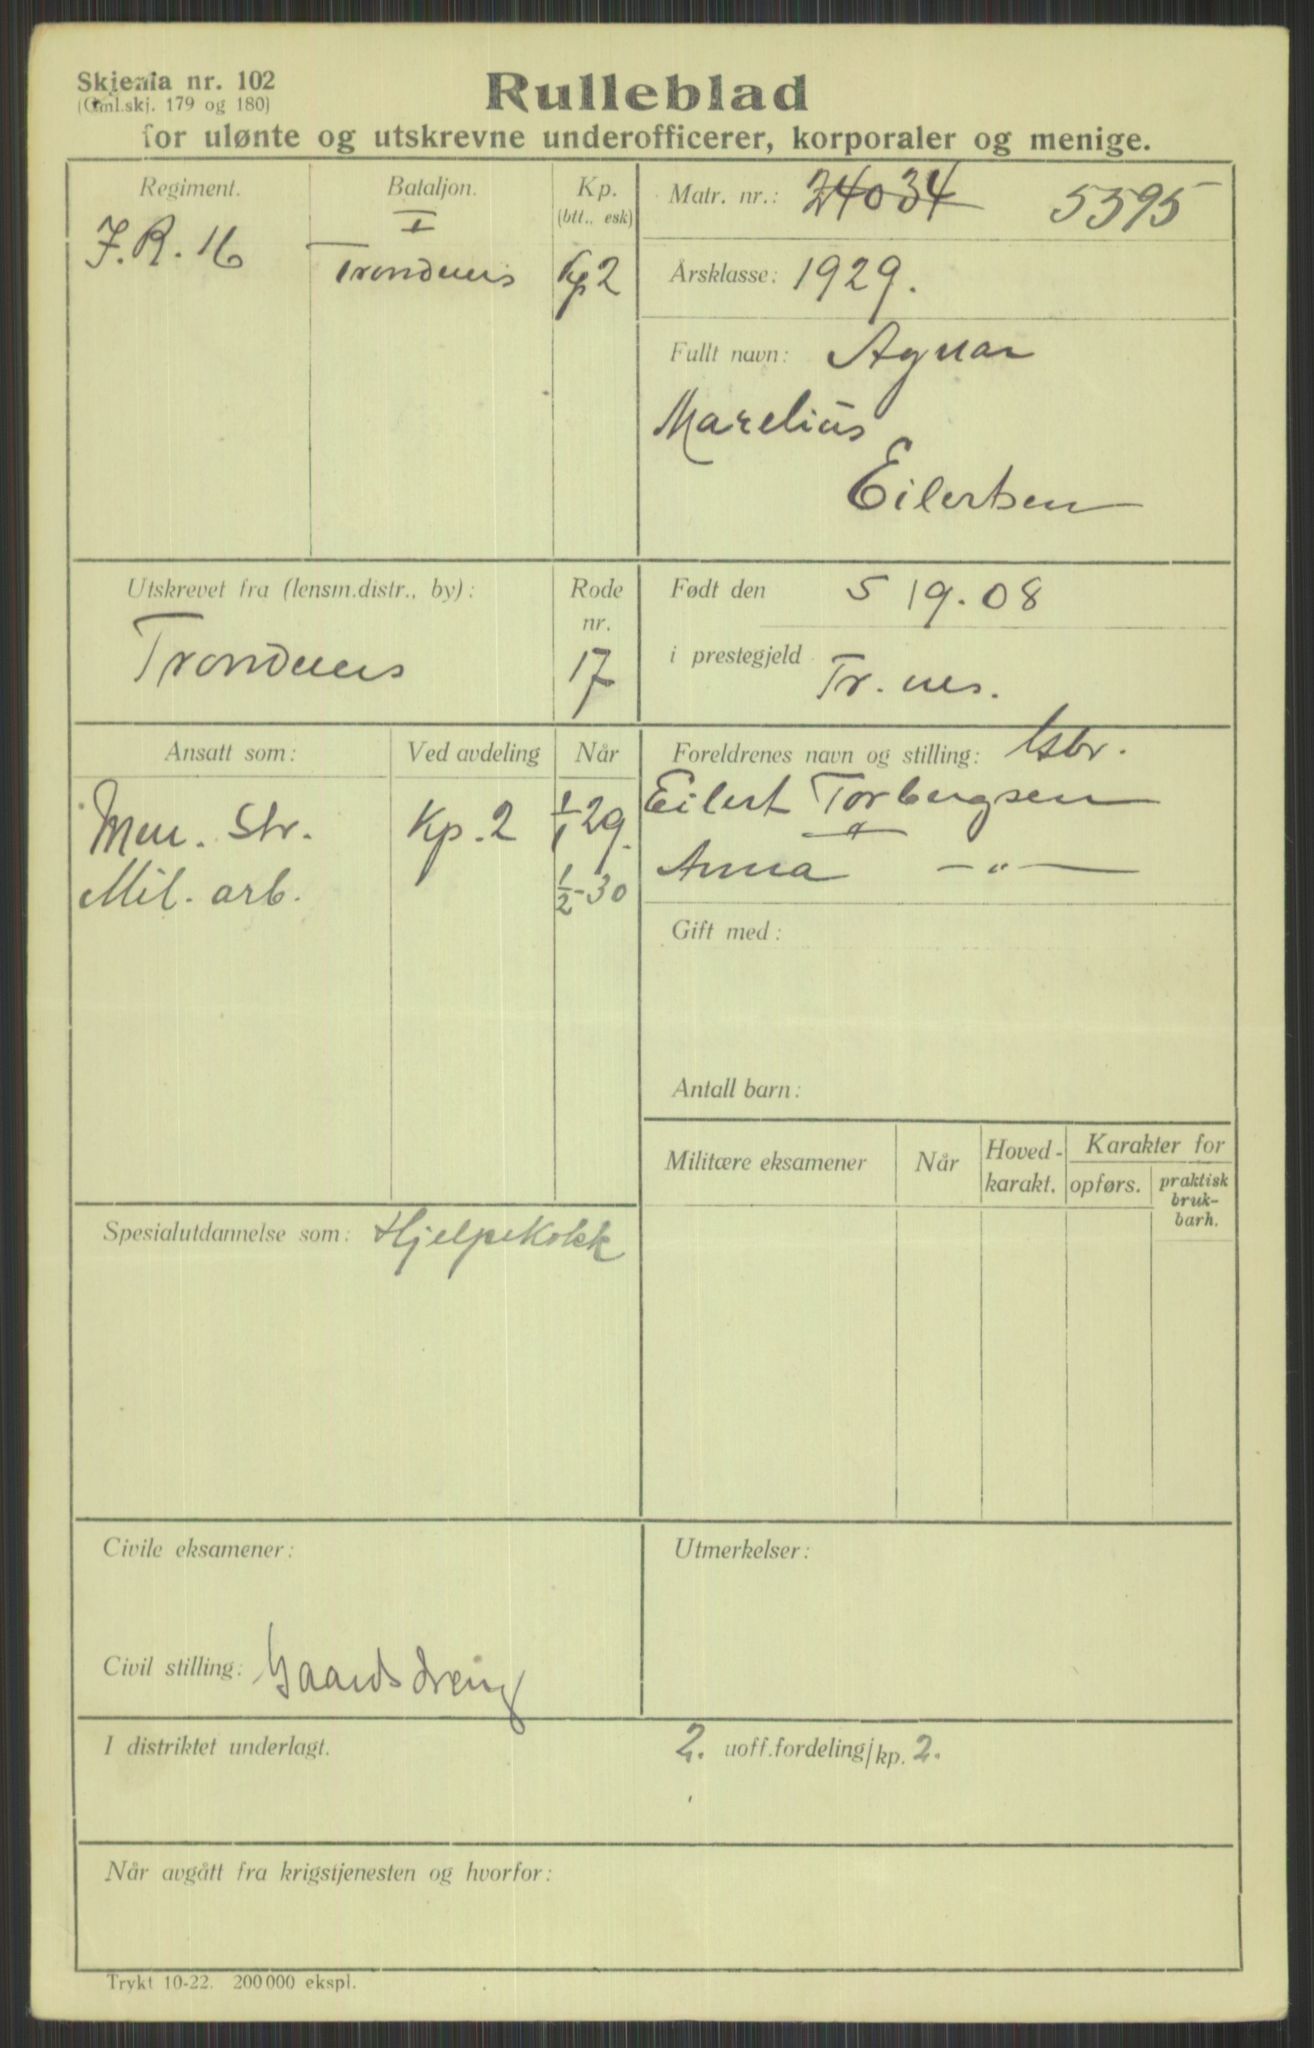 Skjema nr. 102
(Gml.skj. 179 og 180)
Rulleblad
for ulønte og utskrevne underofficerer, korporaler og menige.
Regiment.
J.R. 16
Bataljon.
I
Trondenes
Kp.
(btt., esk)
Kp 2
Matr. nr.: 24034 5395
Årsklasse: 1929.
Fullt navn: Agnar
Marelius
Eilertsen
Utskrevet fra (lensm.distr., by):
Trondenes
Rode
nr.
17
Født den 5 19.08
i prestegjeld Tr.nes.
Ansatt som: Ved avdeling Når
Men. Str. Kp. 2 1/1 29.
Mil. arb. 1/2-30
Foreldrenes navn og stilling: Gbr.
Eilert Torbergsen
Anna —"—
Gift med:
Antall barn:
Militære eksamener
Når
Hoved-
karakt.
Karakter for
opførs.
praktisk
bruk-
barh.
Spesialutdannelse som: Hjelpekokk
Civile eksamener:
Utmerkelser:
Civil stilling: Gaardsdreng
I distriktet underlagt. 2. uoff.fordeling/kp. 2.
Når avgått fra krigstjenesten og hvorfor:
Trykt 10-22. 200 000 ekspl.